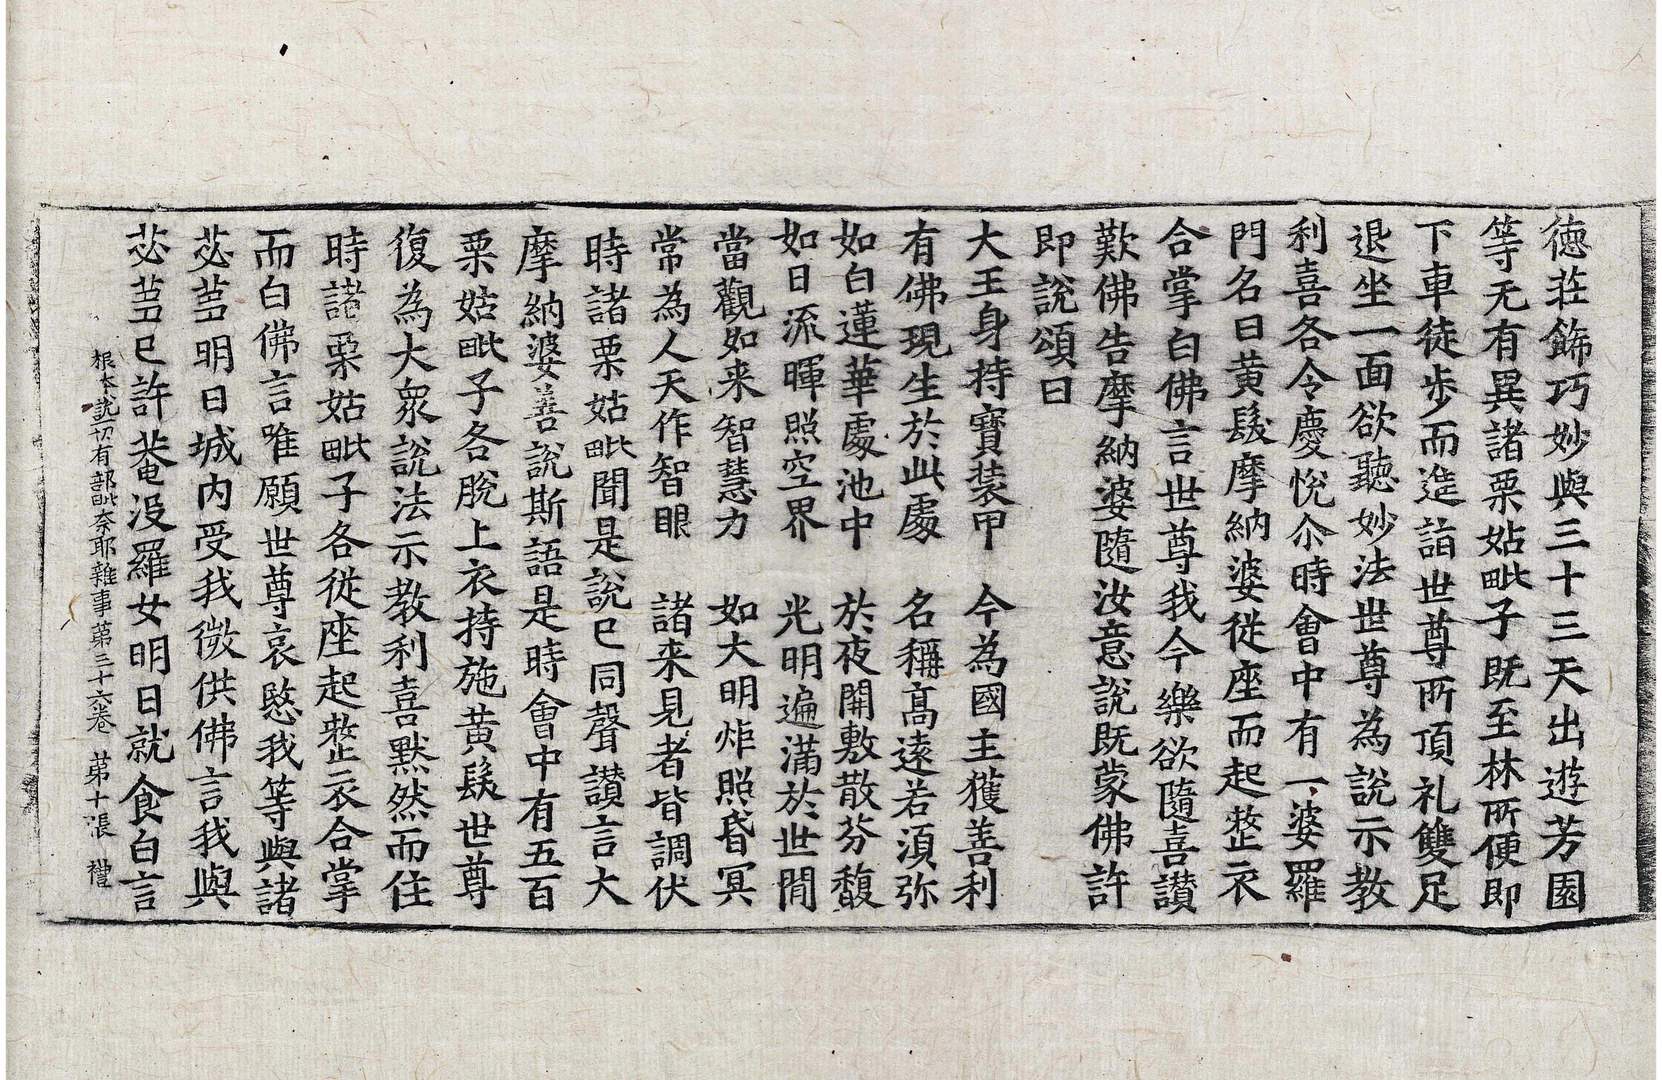 徳莊飾巧妙與三十三天出遊芳園
等无有異諸栗姑毗子既至林所便即
下車徒步而進詣世尊所頂礼雙足
退坐一面欲聽妙法世尊為說示教
利喜各令慶悅尒時會中有一婆羅
門名曰黃髮摩納婆從座而起整衣
合掌白佛言世尊我今樂欲隨喜讃
歎佛告摩納婆隨汝意說既蒙佛許
即說頌曰
大王身持寶裝甲　今為國主獲善利
有佛現生於此處　名稱高遠若湏弥
如白蓮華處池中　於夜開敷散芬馥
如日流暉照空界　光明遍滿於世間
當觀如来智慧力　如大明炬照昏冥
常為人天作智眼　諸来見者皆調伏
時諸栗姑毗聞是說已同聲讃言大
摩納婆善說斯語是時會中有五百
栗姑毗子各脫上衣持施黃髮世尊
復為大衆說法示教利喜默然而住
時諸栗姑毗子各從座起整衣合掌
而白佛言唯願世尊哀愍我等與諸
苾芻明日城內受我微供佛言我與
苾芻已許菴没羅女明日就食白言
根本說一切有部毗奈耶雜事苐三十六卷　苐十張　禮